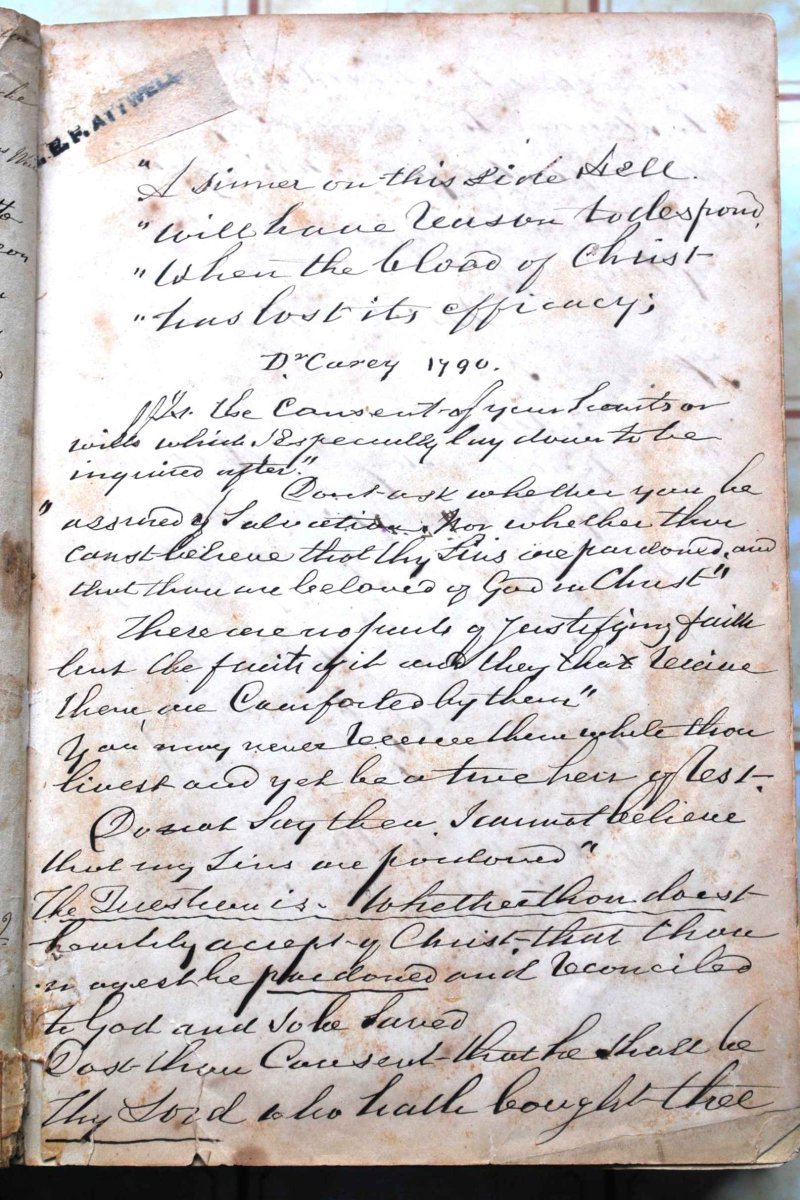 E.F. ATTWELL
"A sinner on this side Hell.
"will have reason to despond,
"When the blood of Christ
"has lost its efficacy;
Dr Carey 1790.
"Tis the Consent of your hearts or
wills which I Especially lay down to be
inquired after."
Dont ask whether you be
"assured of Salvation. Nor whether thou
canst believe that thy Sins are pardoned, and
that thou are beloved of God in Christ"
These are no parts of Justifying faith
but the fruits of it and they that receive
them are Comforted by them"
You may never receive them while thou
livest and yet be a true heir of rest.
Do not Say then. I cannot believe
that my Sins are pardoned"
The Question is. Whether thou doest
heartily accept of Christ that thou
mayest be pardoned and reconciled
to God and so be Saved
Dost thou Consent that he shall be
thy Lord who hath bought thee